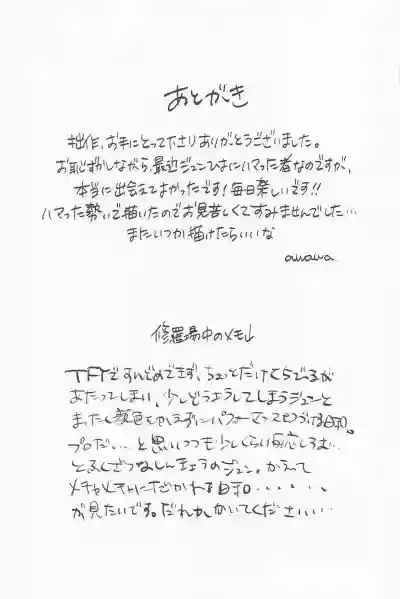 あとがき
拙作、お手にとって下さりありがとうございました。
お恥ずかしながら、最近ジュンひよにハマった者なのですが、
本当に出会えてよかったです!毎日楽しいです!!
ハマった勢いで描いたのでお見苦しくてすみませんでした…
またいつか描けたらいいな
awawa
修羅場中のメモ↓
TFTですんどめできず、ちょっとだけくちびるが
あたってしまい、少しどうようしてしまうジュンと
まったく顔色をかえずにパフォーマンスをつづける日和。
プロだ…と思いつつも少しくらい反応しろよ…
とふくざつなしんきょうのジュン。かえって
メチャメチャにだかれる日和......
が見たいです。だれか、かいてください…